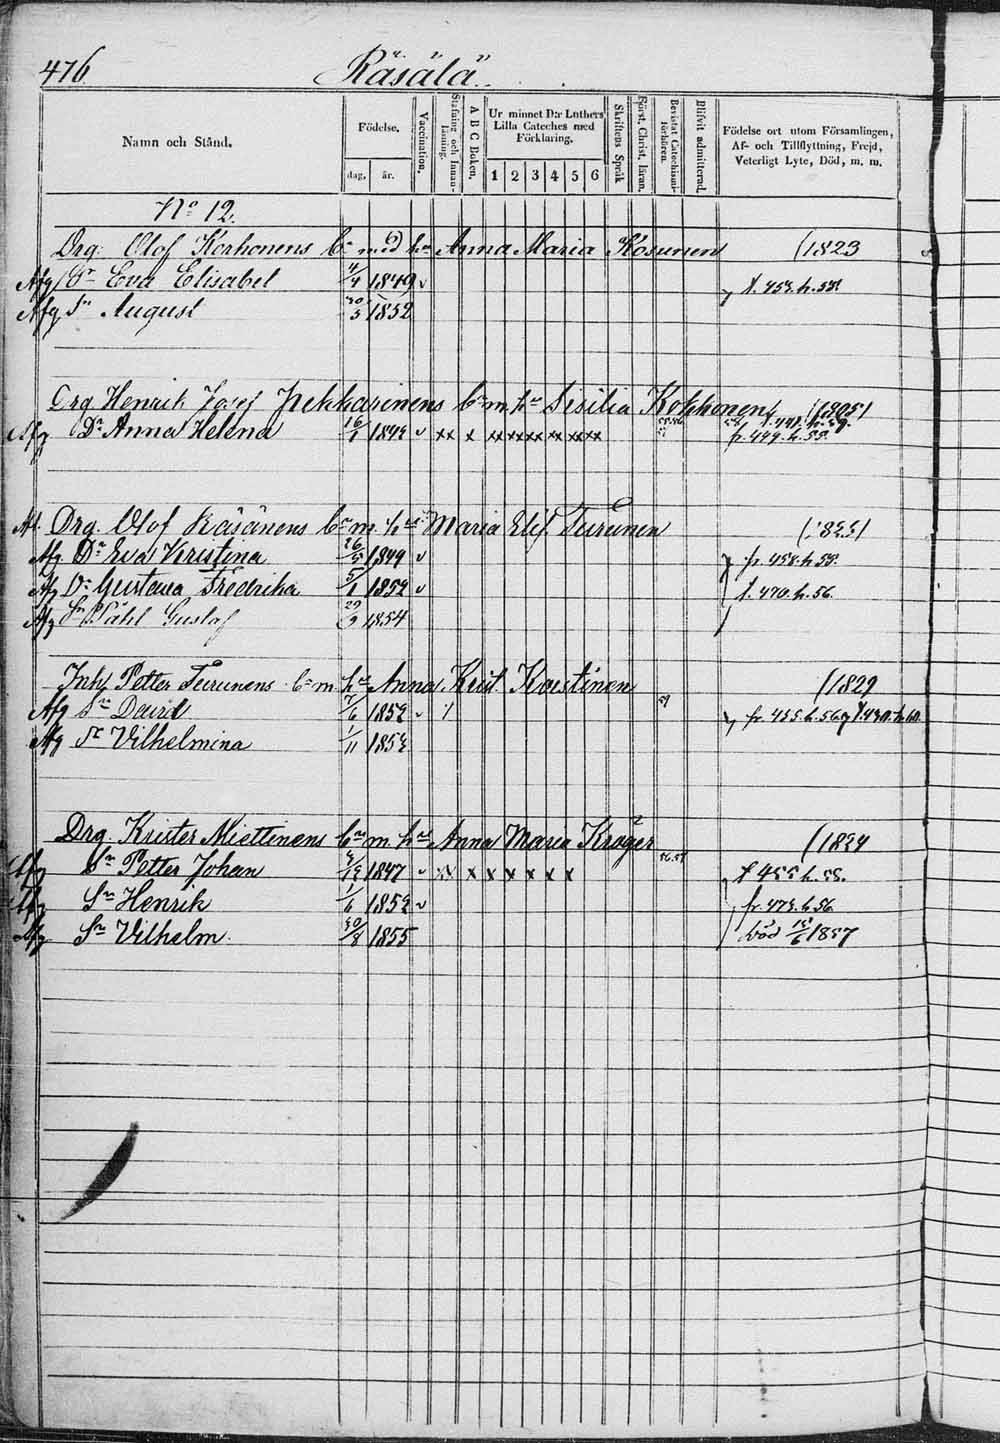 476 Räsälä
Namn och Stånd.
Födelse.
dag. år.
Vaccination.
Stafning och Innanläsning.
A B C Boken.
Ur minnet D:r Luthers Lilla Cateches med Förklaring.
1 2 3 4 5 6
Skriftens Språk
Först. Christ. läran.
Bevistat Catechismiförhören.
Blifvit admitterad.
Födelse ort utom Församlingen, Af- och Tillflyttning, Frejd, Veterligt Lyte, Död, m. m.
No 12.
Drg. Olof Korhonens bn med hu Anna Maria Kosunen (1823
Afg Dr Eva Elisabet 11/4 1849 v
Afg Sn August 30/5 1852
Drg Henrik Josef Pekkarinens bn m. hu Sisilia Kokkonen (1805)
Afg Dr Anna Helena 16/1 1842 v xx x xx xx xx x xx fr. 449. h. 55.
Af. Drg. Olof Räsänens bn m. hu Maria Elis. Turunen
Afg. Dr Eva Kristina 26/5 1849 v fr. 458. h. 55.
Afg Dr Gustava Fredrika 5/1 1852 v t. 470. h. 56.
Afg Sn Påhl Gustaf 29/9 1854
Inh Petter Turunens bn m hu Anna Krist. Koistinen (1829
Afg Sn David 7/6 1852 v / fr. 455. h. 56
Afg Dr Vilhelmina 1/11 1853
Drg. Krister Miettinens bn m. hu Anna Maria Kröger (1824
Afg Sn Petter Johan 1847 v x x x x x x x t 455 h. 55.
Afg Sn Henrik 1/6 1852 v fr. 473. h. 56
Afg Sn Vilhelm. 30/8 1855 död 15/6 1857